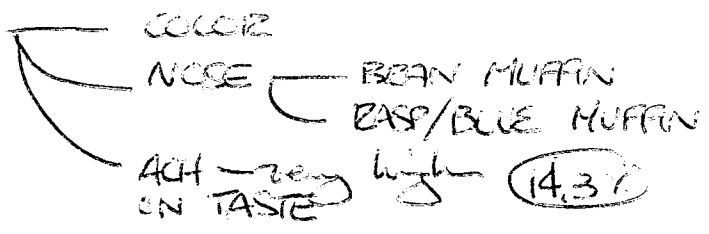 COLOR
NOSE — BRAN MUFFIN
RASP/BLUE MUFFIN
ALCH — very high 14.3%
ON TASTE